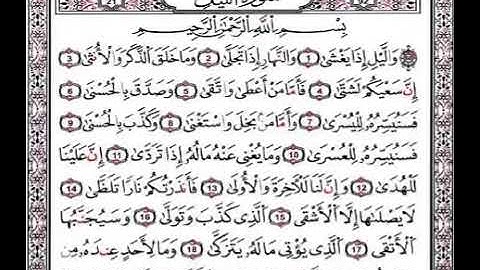 سورة الليل
بِسْمِ اللَّهِ الرَّحْمَٰنِ الرَّحِيمِ
وَاللَّيْلِ إِذَا يَغْشَىٰ 1 وَالنَّهَارِ إِذَا تَجَلَّىٰ 2 وَمَا خَلَقَ الذَّكَرَ وَالْأُنثَىٰ 3
إِنَّ سَعْيَكُمْ لَشَتَّىٰ 4 فَأَمَّا مَنْ أَعْطَىٰ وَاتَّقَىٰ 5 وَصَدَّقَ بِالْحُسْنَىٰ 6
فَسَنُيَسِّرُهُ لِلْيُسْرَىٰ 7 وَأَمَّا مَنْ بَخِلَ وَاسْتَغْنَىٰ 8 وَكَذَّبَ بِالْحُسْنَىٰ 9
فَسَنُيَسِّرُهُ لِلْعُسْرَىٰ 10 وَمَا يُغْنِي عَنْهُ مَالُهُ إِذَا تَرَدَّىٰ 11 إِنَّ عَلَيْنَا
لَلْهُدَىٰ 12 وَإِنَّ لَنَا لَلْآخِرَةَ وَالْأُولَىٰ 13 فَأَنذَرْتُكُمْ نَارًا تَلَظَّىٰ 14
لَا يَصْلَاهَا إِلَّا الْأَشْقَى 15 الَّذِي كَذَّبَ وَتَوَلَّىٰ 16 وَسَيُجَنَّبُهَا
الْأَتْقَى 17 الَّذِي يُؤْتِي مَالَهُ يَتَزَكَّىٰ 18 وَمَا لِأَحَدٍ عِندَهُ مِن